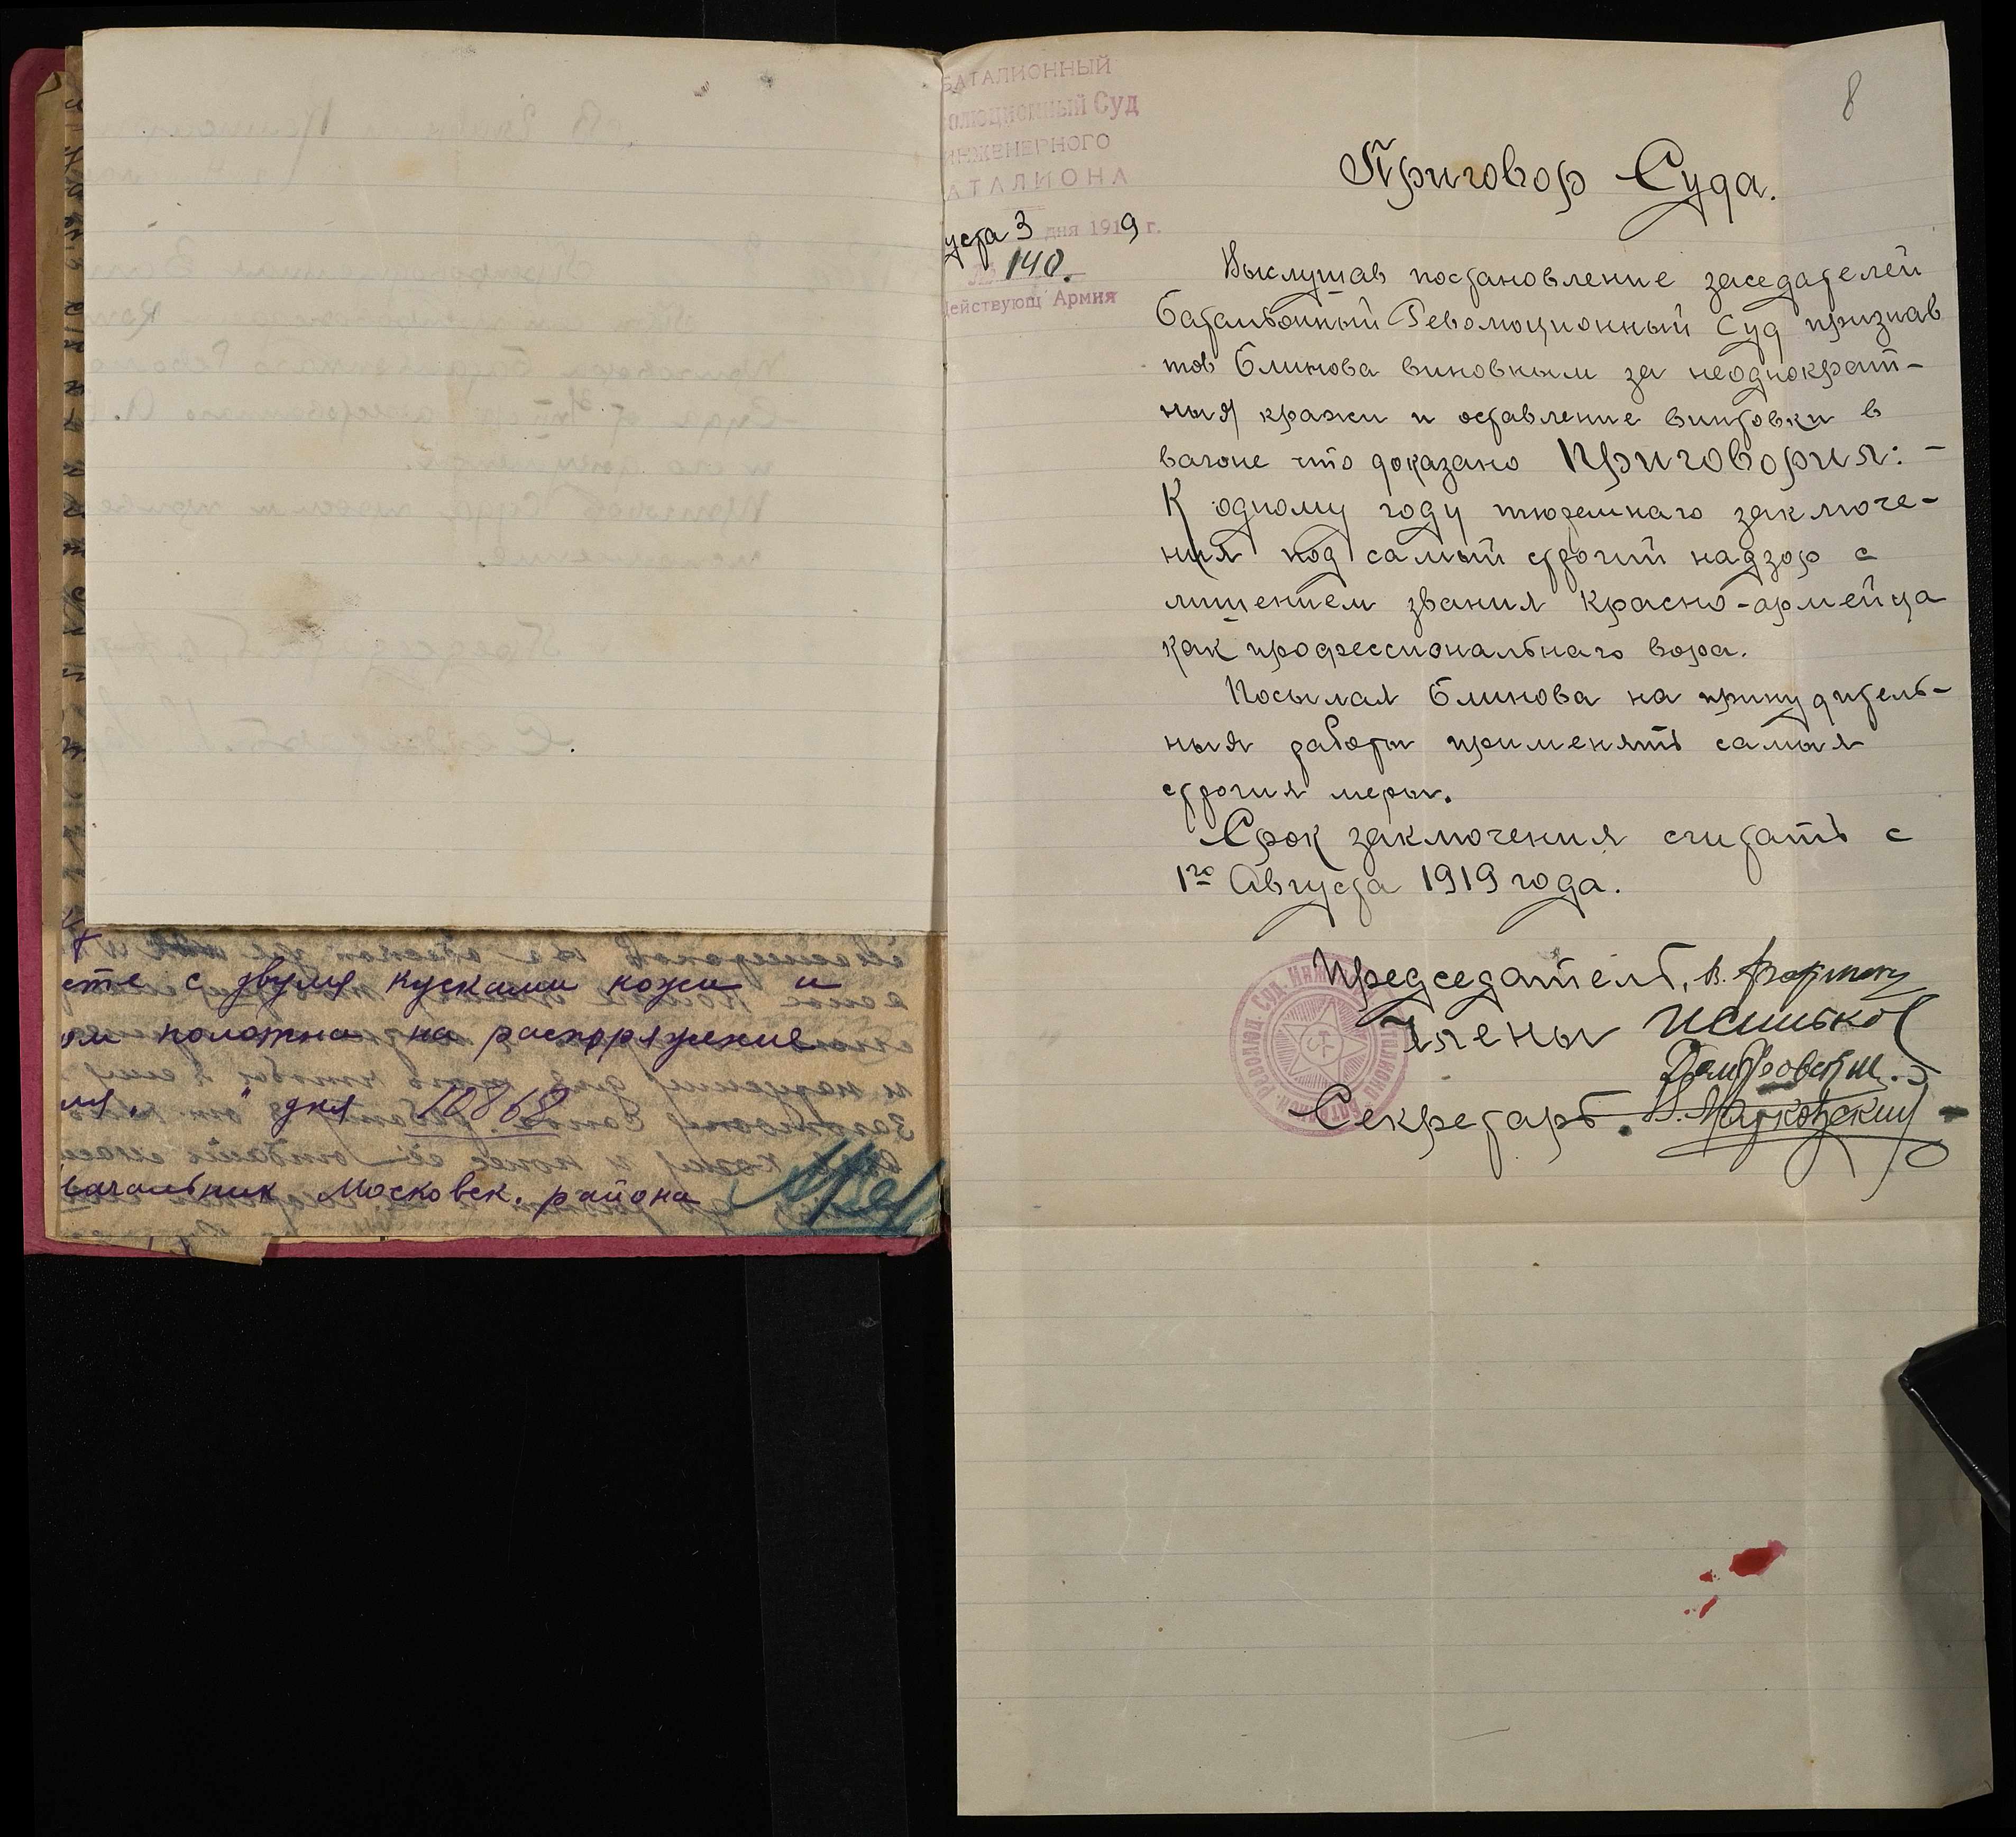 сте с двумя кусками кожи и
полотна на распоряжение
дня 10868
Начальник Московск. района
БАТАЛИОННЫЙ
олюционный Суд
ИНЖЕНЕРНОГО
АТАЛИОНА
уста 3 дня 1919 г.
№ 140.
Действующ Армия
8
Приговор Суда.
Выслушав постановление заседателей
Батальонный Революционный Суд признав
тов Блинова виновным за неоднократ-
ныя кражи и оставление винтовки в
вагоне что доказано Приговорил: -
К одному году тюремнаго заключе-
ния под самый строгий надзор с
лишением звания красно-армейца
как профессиональнаго вора.
Посылая Блинова на принудитель-
ныя работы применять самыя
строгия меры.
Срок заключения считать с
1го Августа 1919 года.
Председатель, В.
Члены
Домбровский.
Секретарь. В. Марковский